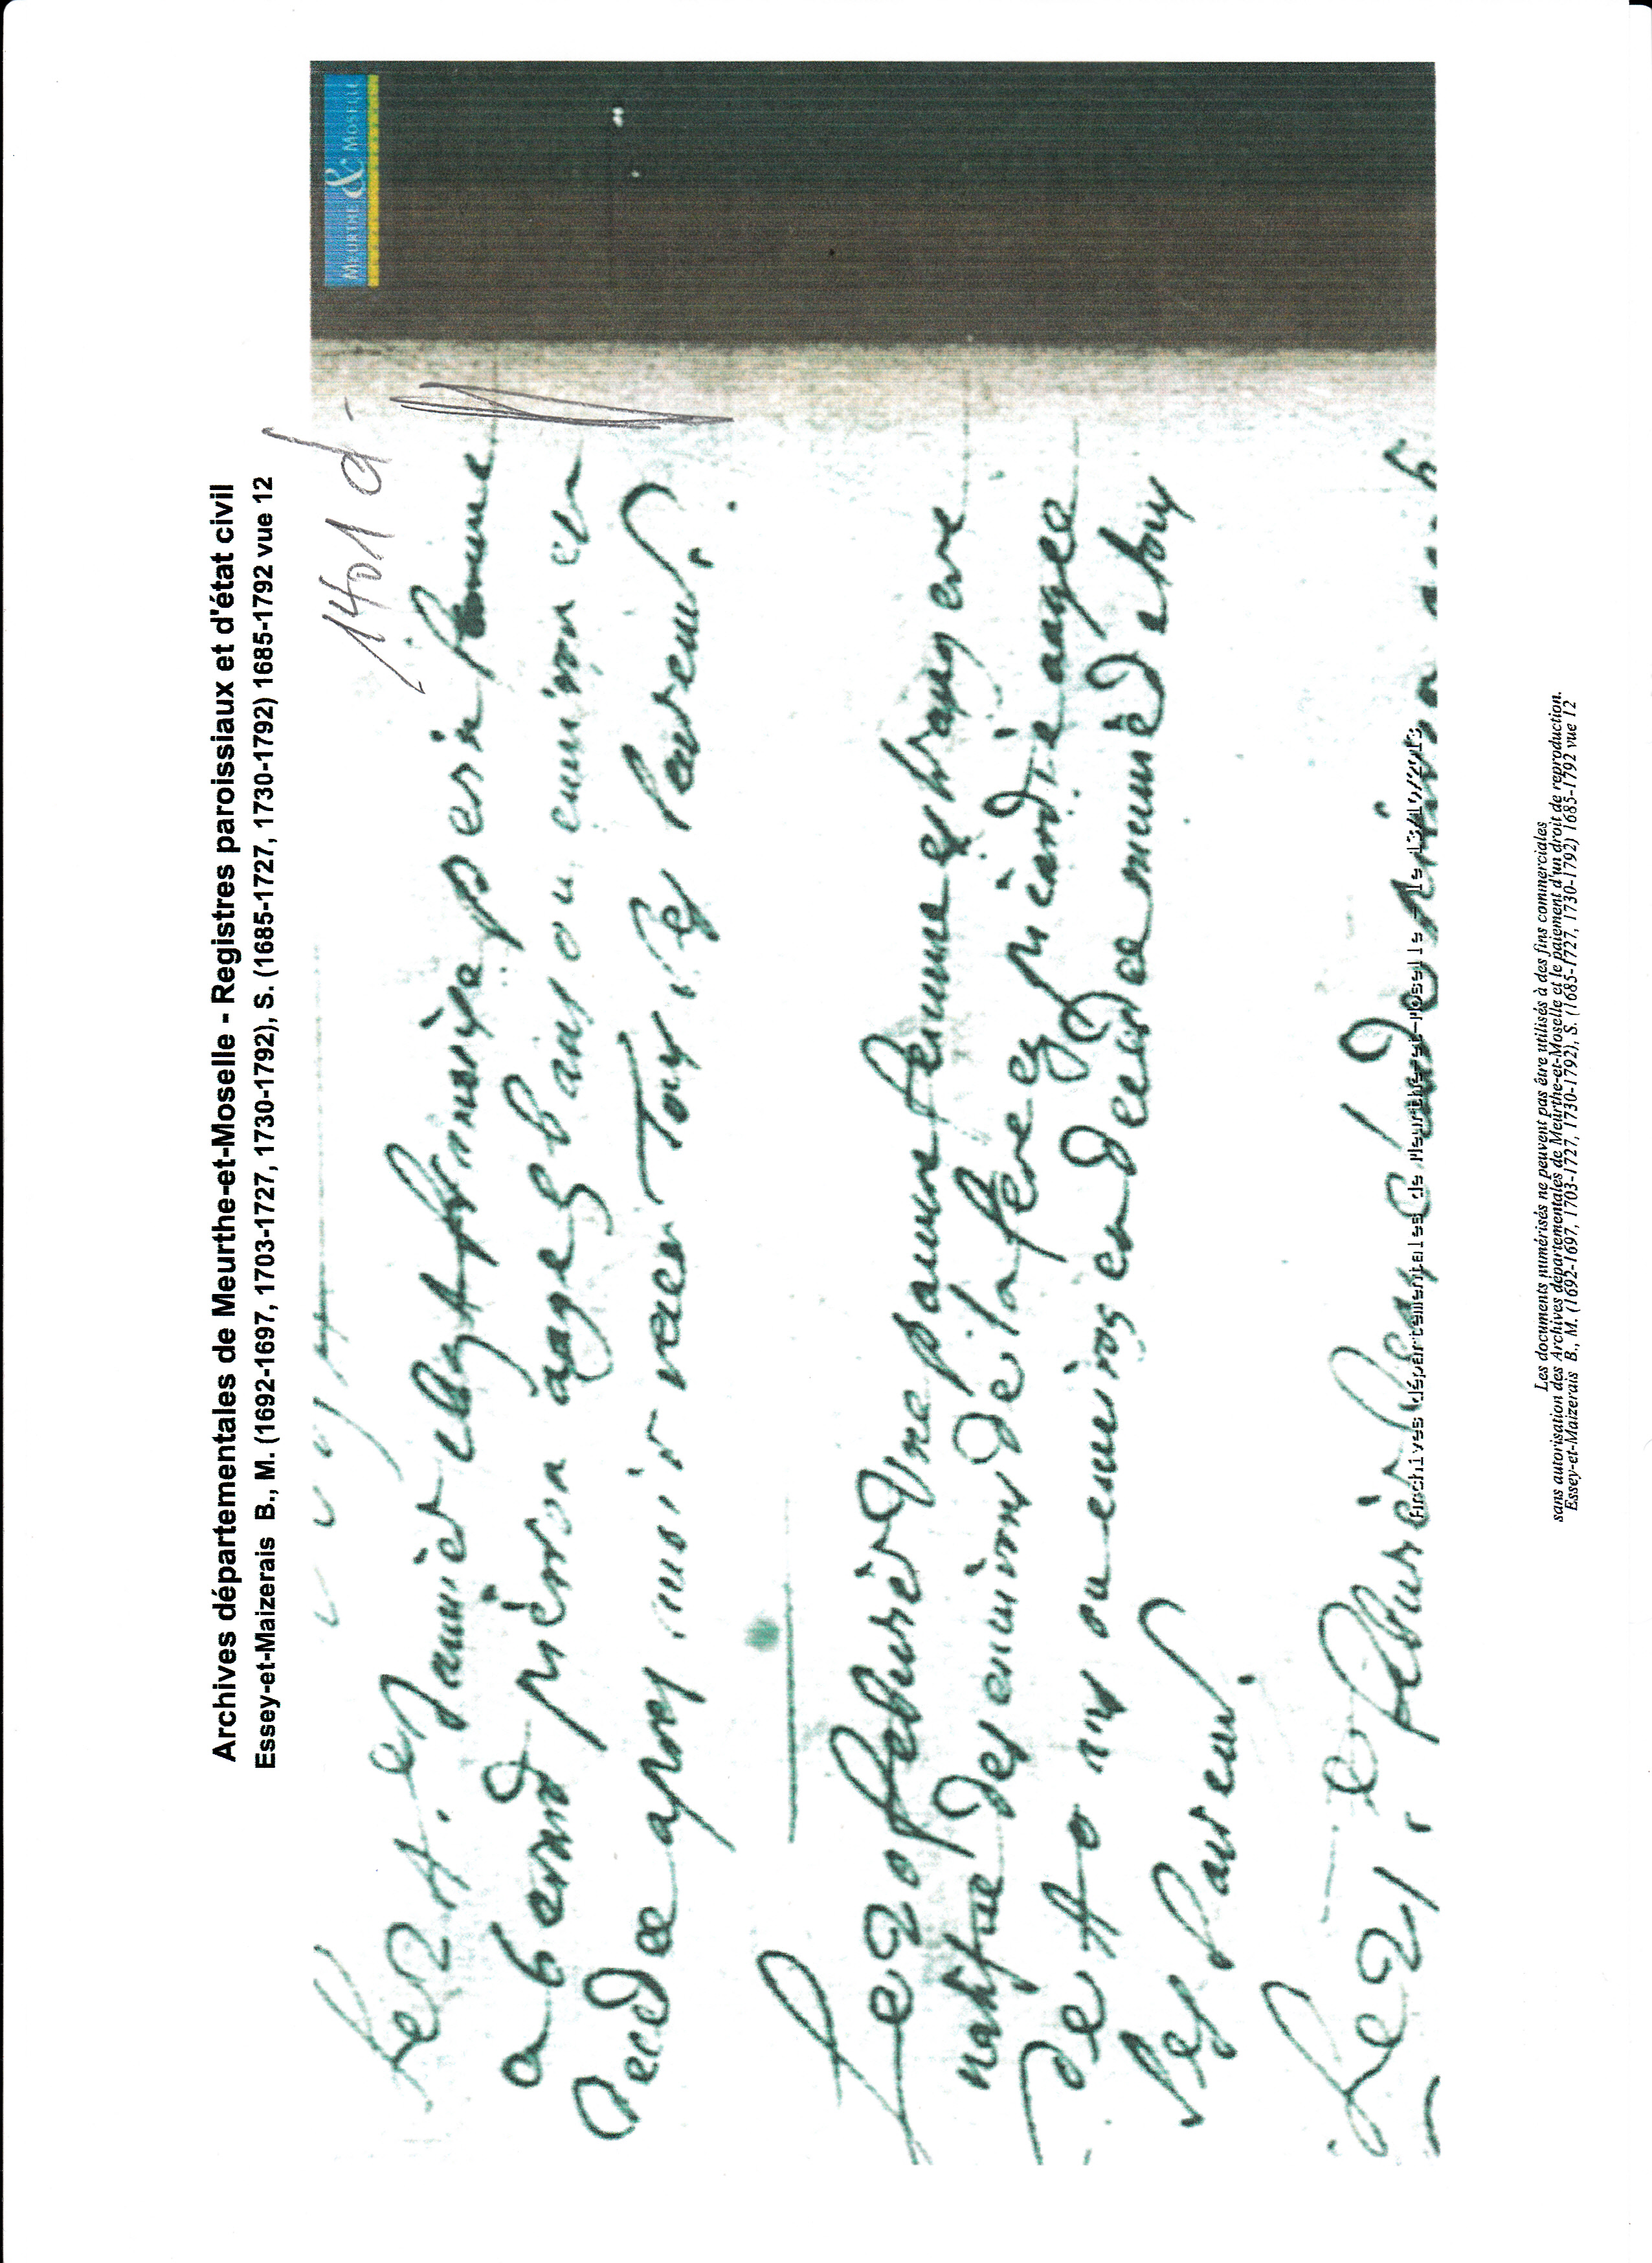 Archives départementales de Meurthe-et-Moselle - Registres paroissiaux et d'état civil
Essey-et-Maizerais B., M. (1692-1697, 1703-1727, 1730-1792), S. (1685-1727, 1730-1792) 1685-1792 vue 12
MEURTHE & MOSELLE
1401 d
Le 24. e Januier perin femme
a berard piéron aagé ans ou enuiron est
decedee apres auoir receu Tous les sacremens.
Le 20 feburier Une pauure femme estrangere
natifue des enuirons de la fere en picardie aagee
de 40 ans ou enuirons est decedee munie de tous
les sacremens.
Le 21. e feburier
Archives départementales de Meurthe-et-Moselle
Les documents numérisés ne peuvent pas être utilisés à des fins commerciales
sans autorisation des Archives départementales de Meurthe-et-Moselle et le paiement d'un droit de reproduction.
Essey-et-Maizerais B., M. (1692-1697, 1703-1727, 1730-1792), S. (1685-1727, 1730-1792) 1685-1792 vue 12